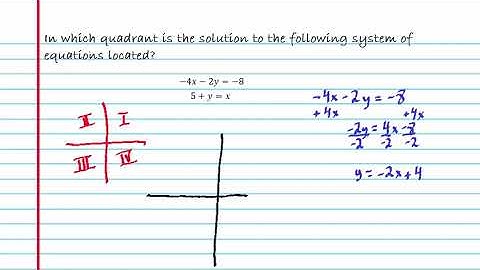 In which quadrant is the solution to the following system of
equations located?
−4x − 2y = −8
5 + y = x
II I
III IV
-4x - 2y = -8
+4x +4x
-2y = 4x - 8
-2 -2 -2
y = -2x + 4